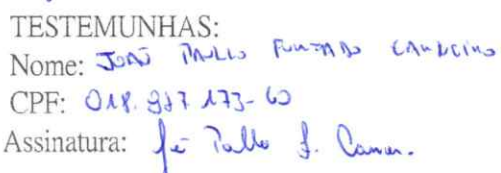 TESTEMUNHAS:
Nome: JOÃO PAULO FURTADO CARNEIRO
CPF: 018.987.173-60
Assinatura: João Paulo F. Carneiro